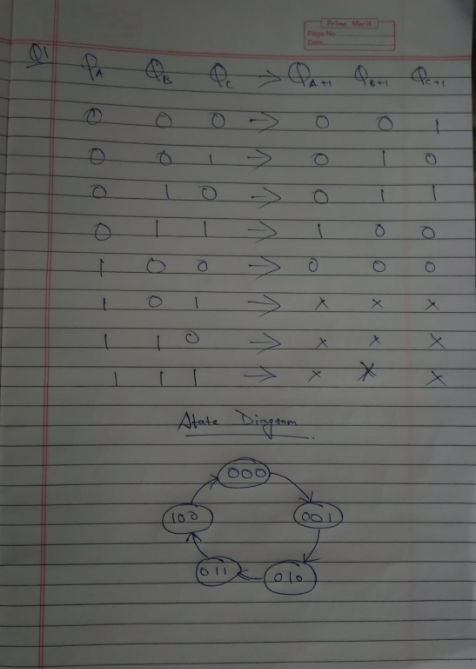 Prime Merit
Page No.
Date
Q1
Q_A Q_B Q_C → Q_A+1 Q_B+1 Q_C+1
0 0 0 → 0 0 1
0 0 1 → 0 1 0
0 1 0 → 0 1 1
0 1 1 → 1 0 0
1 0 0 → 0 0 0
1 0 1 → x x x
1 1 0 → x x x
1 1 1 → x x x
State Diagram
000
100
001
011
010